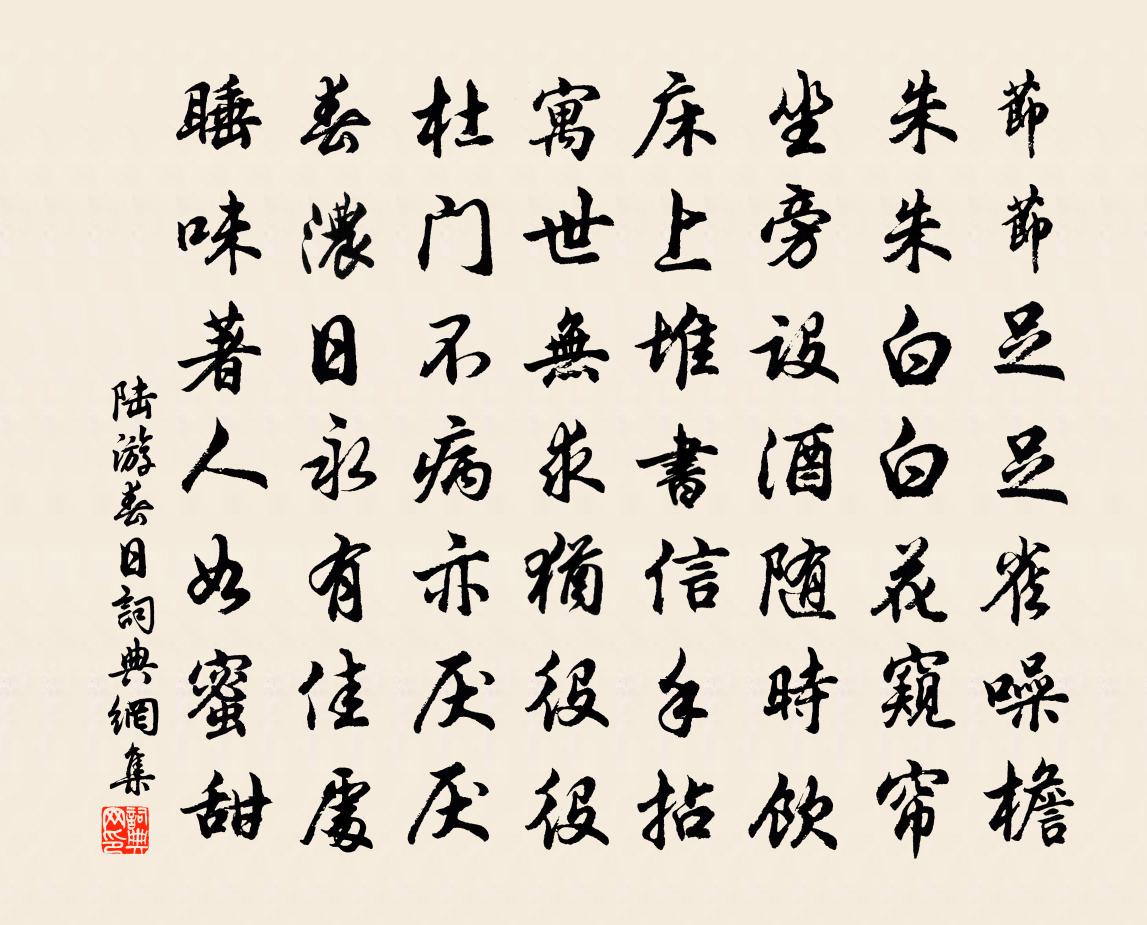 節節足足雀噪檐
朱朱白白花窺帘
坐旁設酒随時飲
床上堆書信手拈
寓世無求猶役役
杜门不病亦厌厌
春濃日永有佳處
睡味著人如蜜甜
陆游春日詞典網集
詞典网印